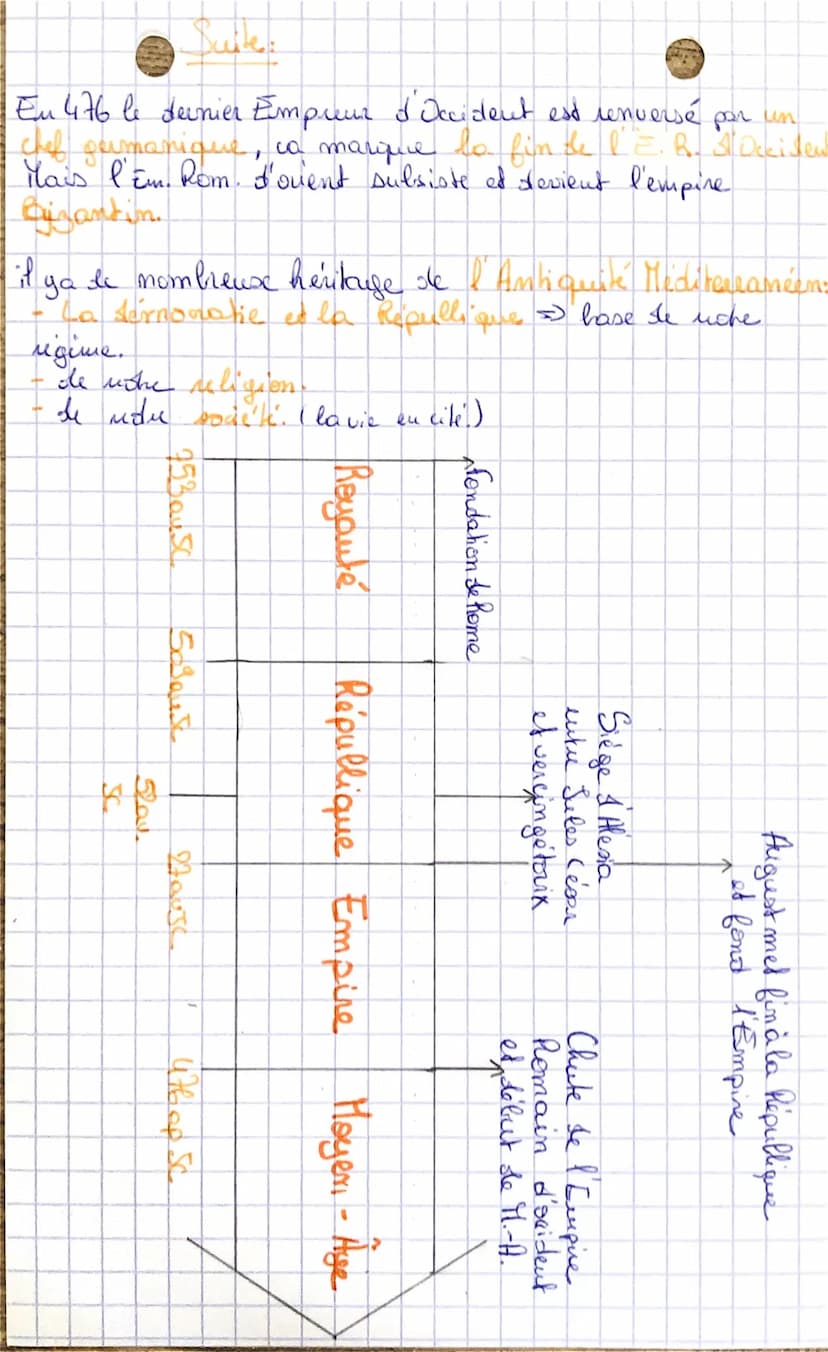 Suite:
En 476 le dernier Empreur d'Occident est renversé par un
chef germanique, ça marque la fin de l'E. R. d'Occident
Mais l'Em. Rom. d'orient subsiste et devient l'empire
Byzantin.
il ya de nombreux héritage de l'Antiquité Méditerranéen:
- La démocratie et la République => base de notre
régime.
- de notre religion.
- de notre société. (la vie en cité.)
Fondation de Rome
Siège d'Alésia
entre Jules César
et vercingétorix
August met fin à la République
et fond l'Empire
Chute de l'Empire
Romain d'occident
et début de M.-A.
Royauté
République
Empire
Moyen-Âge
753 av JC
509 av JC
52 av.
JC
27 av JC
476 ap JC